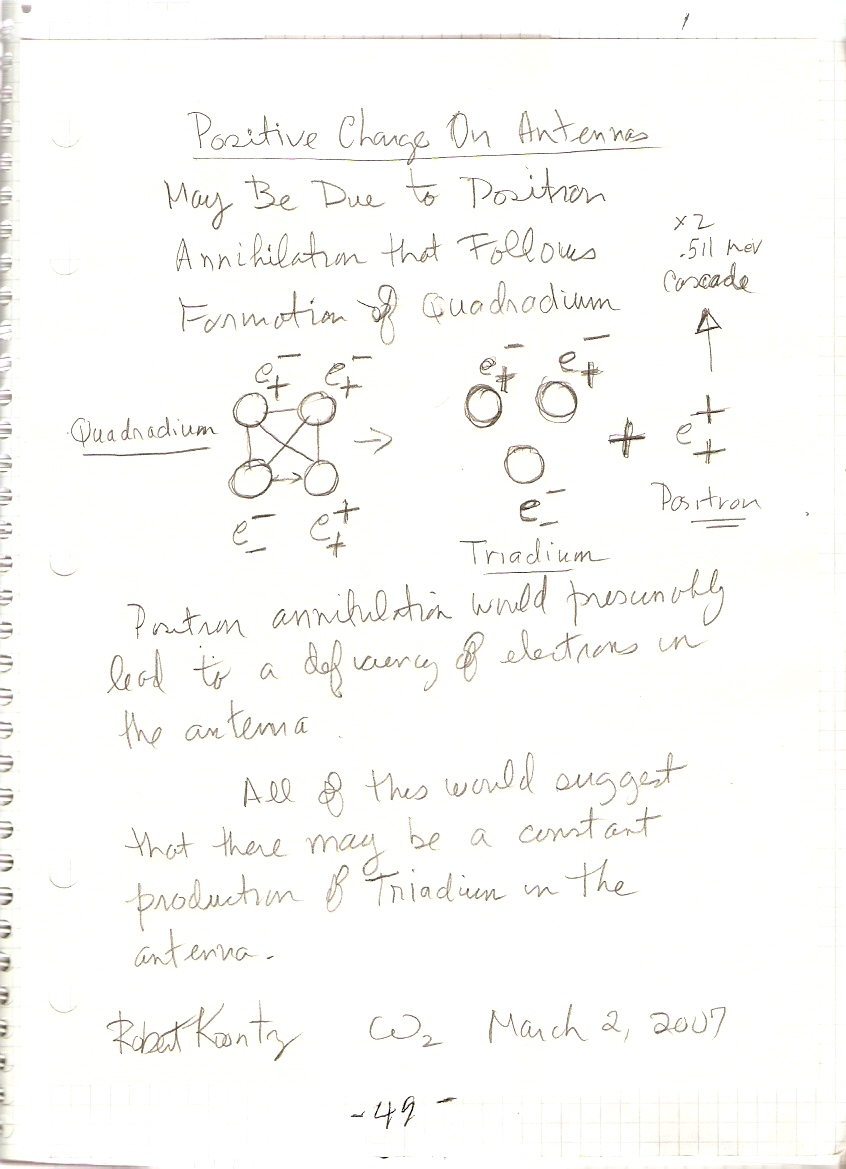 1
Positive Charge On Antennas
May Be Due to Positron
Annihilation that Follows
Formation of Quadradium
x 2
.511 Mev
Cascade
e-+ e-+
Quadradium
→
e-- e++
e-+ e-+
e--
Triadium
+
e++
Positron
Positron annihilation would presumably
lead to a deficiency of electrons in
the antenna.
All of this would suggest
that there may be a constant
production of Triadium in the
antenna.
Robert Koontz ω2 March 2, 2007
-49-